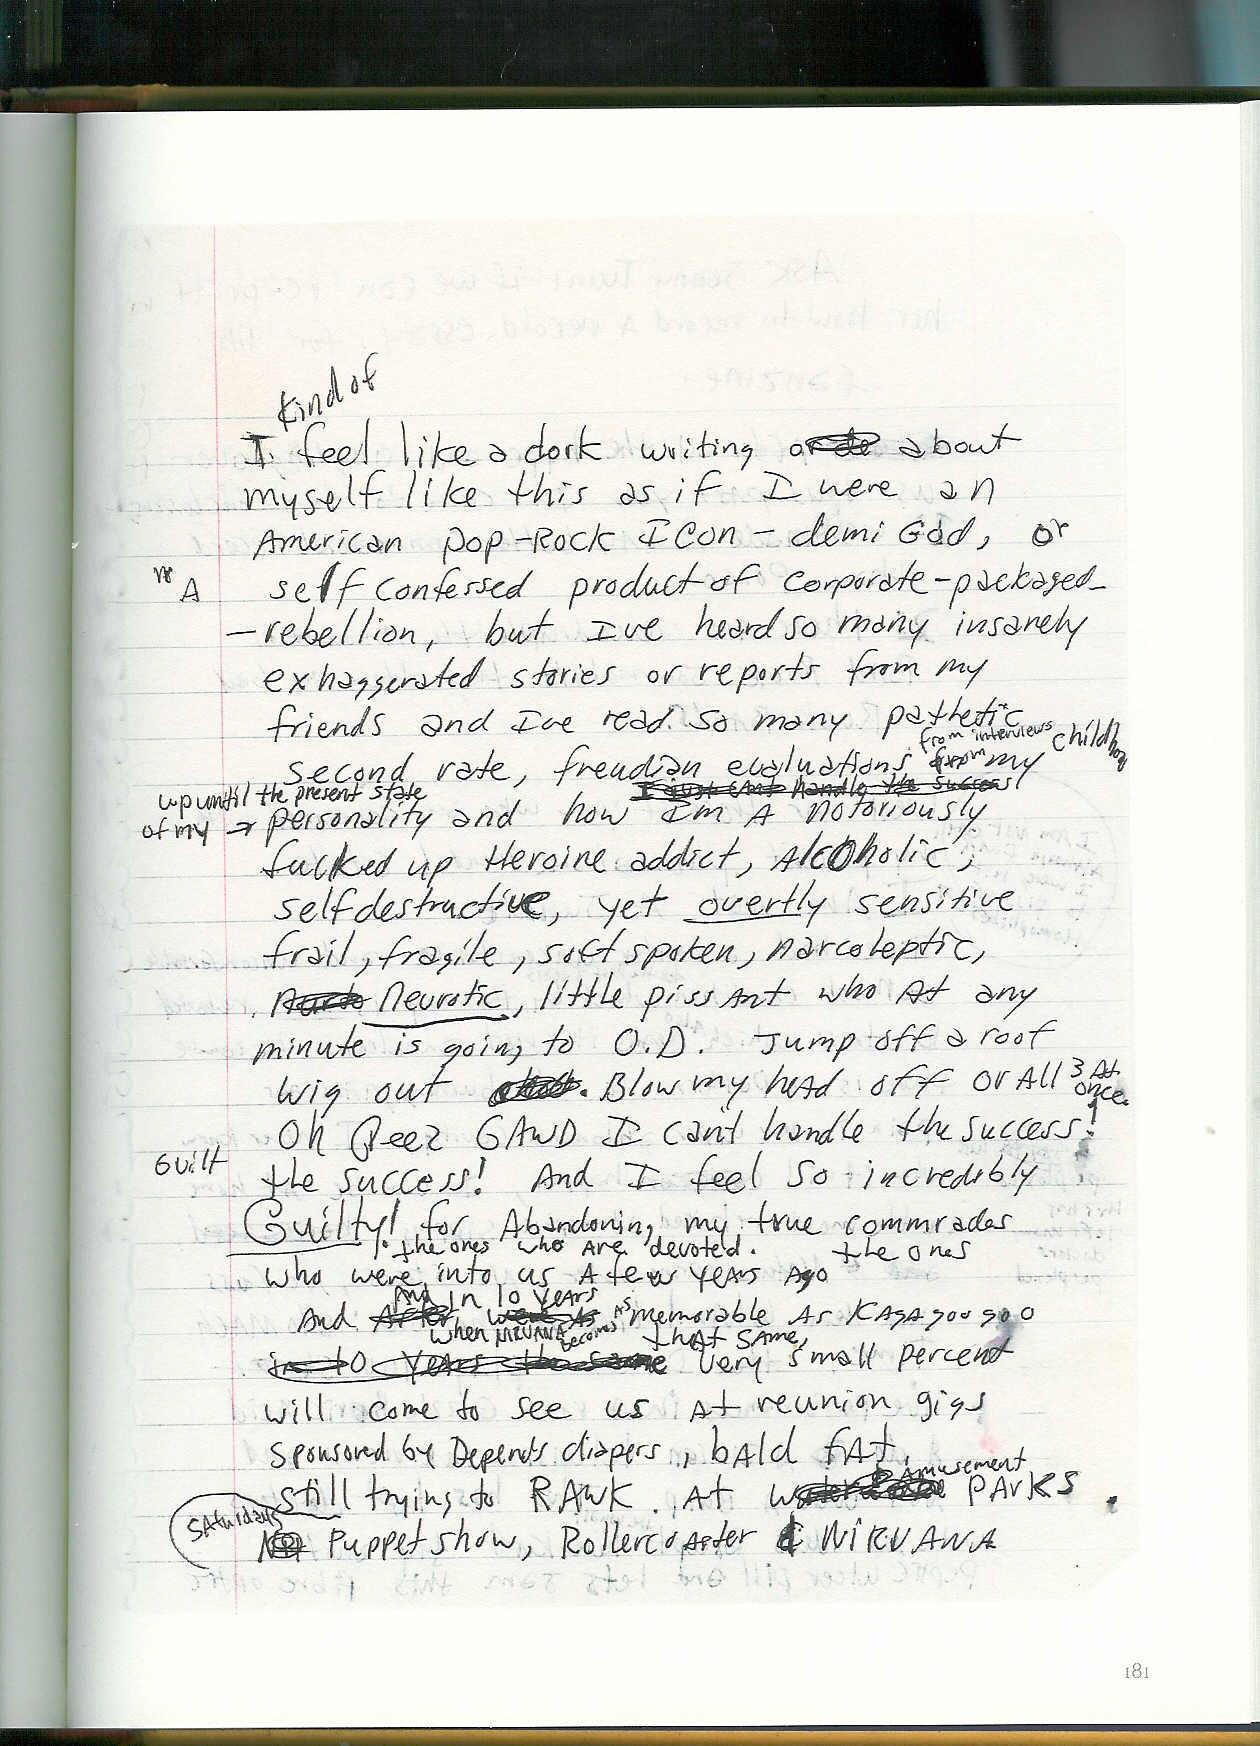 kind of
I feel like a dork writing about
myself like this as if I were an
American pop-Rock ICON - demi God, or
A self confessed product of corporate-packaged-
-rebellion, but Ive heard so many insanely
exhaggerated stories or reports from my
friends and Ive read so many pathetic
from interviews childhood
second rate, freudian evaluations from my
I just cant handle the success
up until the present state
of my → personality and how Im A notoriously
fucked up Heroine addict, Alcoholic,
selfdestructive, yet overtly sensitive
frail, fragile, soft spoken, narcoleptic,
Neurotic, little piss Ant who At any
minute is going to O.D. Jump off a roof
wig out Blow my head off or All 3 At
once.
Oh Geez GAWD I cant handle the success!
Guilt the success! And I feel so incredibly
Guilty! for Abandoning my true commrades
the ones who Are devoted. the ones
who were into us A few years Ago
And in 10 years
And After were As As memorable As KAgAgoogoo
when NIRVANA becomes that same,
in 10 years the same very small percent
will come to see us At reunion gigs
sponsored by Depends diapers, bAld fAt
Amusement
still trying to RAWK. At PArks
Saturdays
Puppet show, Rollercoaster & NIRVANA
181